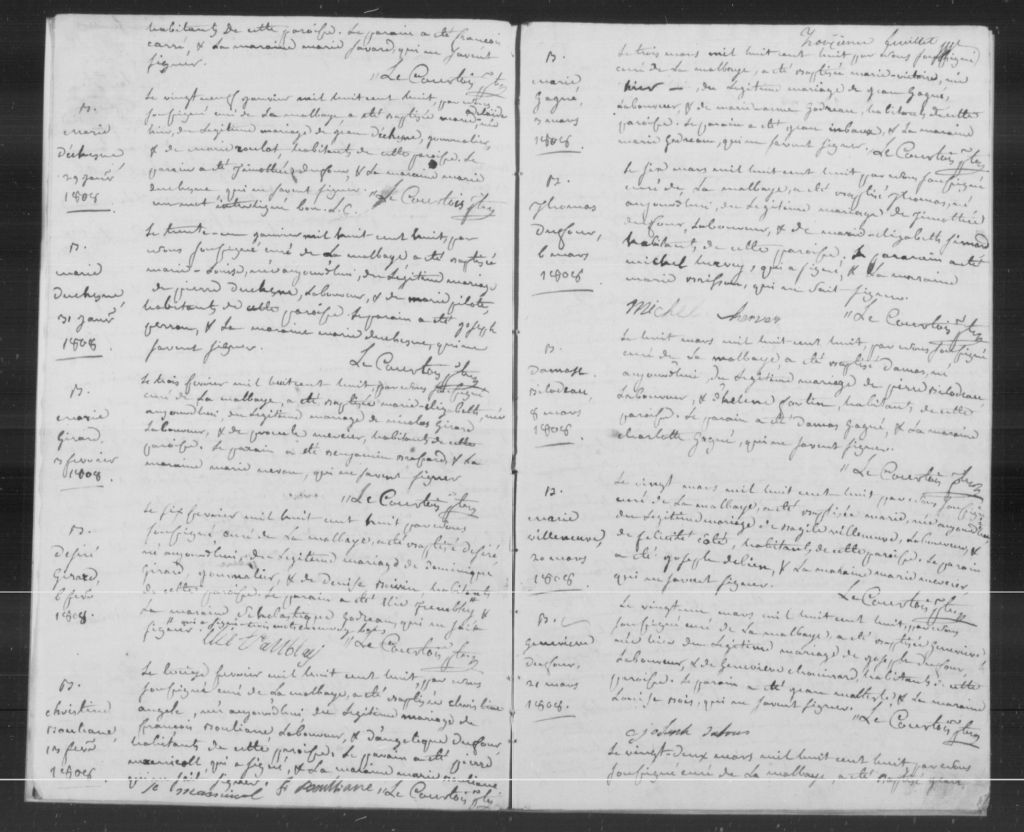 habitants de cette paroisse. Le parain a été françois
carré, & La maraine marie savard, qui ne savent
signer.
"Le Courtois ptre
B.
marie
duchesne,
29 janvr
1808
Le vingt neuf janvier mil huit cent huit, par nous
soussigné curé de La malbaye, a été baptisée marie
hier, du Legitime mariage de jean duchesne, journalier,
& de marie boulot habitants de cette paroisse. Le
parain a été dufour, & La maraine marie
duchesne, qui ne savent signer.
un mot interligné bon. L.C. "Le Courtois ptre
B.
marie
duchesne,
31 janvr
1808
Le trente-un janvier mil huit cent huit, par
nous soussigné curé de La malbaye a été baptisée
marie-Louise, née aujourd'hui, du Legitime mariage
de pierre duchesne, Laboureur, & de marie pilote,
habitants de cette paroisse. Le parain a été joseph
perron, & La maraine marie duchesne, qui ne
savent signer.
Le Courtois ptre
B.
marie
Girard,
3 fevrier
1808
Le trois fevrier mil huit cent huit, par nous soussigné
curé de La malbaye, a été baptisée marie-elizabeth, née
aujourd'hui du Legitime mariage de nicolas Girard
Laboureur, & de mercier, habitants de cette
paroisse. Le parain a été benjamin brassard, & La
maraine marie, qui ne savent signer
"Le Courtois ptre
B.
desiré
Girard,
6 fevr
1808
Le six fevrier mil huit cent huit par nous
soussigné, curé de La malbaye, a été baptisé desiré
né aujourd'hui, du Legitime mariage de dominique
Girard, journalier, & de denise boivin, habitants
de cette paroisse. Le parain a été tremblay, &
La maraine Scholastique Gadreau, qui ne sait
signer.
"Le Courtois ptre
B.
christine
bouliane,
13 fevr
1808
Le treize fevrier mil huit cent huit, par nous
soussigné curé de La malbaye, a été baptisée christine
angele, née aujourd'hui du Legitime mariage de
françois bouliane, Laboureur, & d'angelique dufour,
habitants de cette paroisse. Le parain a été
, qui a signé, & La maraine marie bouliane
qui ne sait signer. "Le Courtois ptre
Troisieme feuillet
B.
marie
Gagné,
3 mars
1808
Le trois mars mil huit cent huit par nous soussigné
curé de La malbaye, a été baptisée marie-victoire, née
hier, du Legitime mariage de jean Gagné,
Laboureur, & de marie-anne Gadreau, habitants de cette
paroisse. Le parain a été jean, & La maraine
marie Gadreau, qui ne savent signer. Le Courtois ptre
B.
Thomas
Dufour,
6 mars
1808
Le six mars mil huit cent huit par nous soussigné
curé de La malbaye, a été baptisé Thomas, né
aujourd'hui, du Legitime mariage de
dufour, Laboureur, & de marie-elizabeth simard
habitants de cette paroisse. Le parain a été
michel hervey, qui a signé, & La maraine
marie brisson, qui ne sait signer.
Michel hervey "Le Courtois ptre
B.
Damase
Bilodeau,
8 mars
1808
Le huit mars mil huit cent huit, par nous soussigné
curé de La malbaye, a été baptisé Damas, né
aujourd'hui, du Legitime mariage de pierre Bilodeau,
Laboureur, & d'helene fortin, habitants de cette
paroisse. Le parain a été Damas Gagné, & La maraine
charlotte Gagné, qui ne savent signer.
"Le Courtois ptre
B.
marie
villeneuve,
20 mars
1808
Le vingt mars mil huit cent huit par nous soussigné
curé de La malbaye, a été baptisée marie, née aujourd'hui,
du Legitime mariage de basile villeneuve, Laboureur, &
de felicité coté, habitants de cette paroisse. Le parain
a été joseph, & La maraine marie mercier
qui ne savent signer.
Le Courtois ptre
B.
Genevieve
Dufour,
21 mars
1808
Le vingt-un mars mil huit cent huit, par nous
soussigné curé de La malbaye, a été baptisée Genevieve
née hier du Legitime mariage de joseph dufour,
Laboureur, & de Genevieve chouinard habitants de cette
paroisse. Le parain a été jean maltais, & La maraine
bois, qui ne savent signer.
"Le Courtois ptre
Le vingt-deux mars mil huit cent huit par nous
soussigné curé de La malbaye, a été baptisé